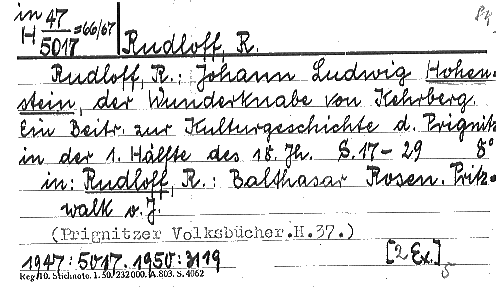 in 47
H 5017 = 66/67
84
Rudloff, R.
Rudloff, R.: Johann Ludwig Hohen-
stein, der Wunderknabe von Kehrberg.
Ein Beitr. zur Kulturgeschichte d. Prignitz
in der 1. Hälfte des 18. Jh. S. 17-29 8°
in: Rudloff, R.: Balthasar Rosen. Pritz-
walk o. J.
(Prignitzer Volksbücher.H.37.)
1947:5017. 1950:3119 [2 Ex.]
Reg/10. Stichnote. 1. 50. 232000. A.803. S. 4062